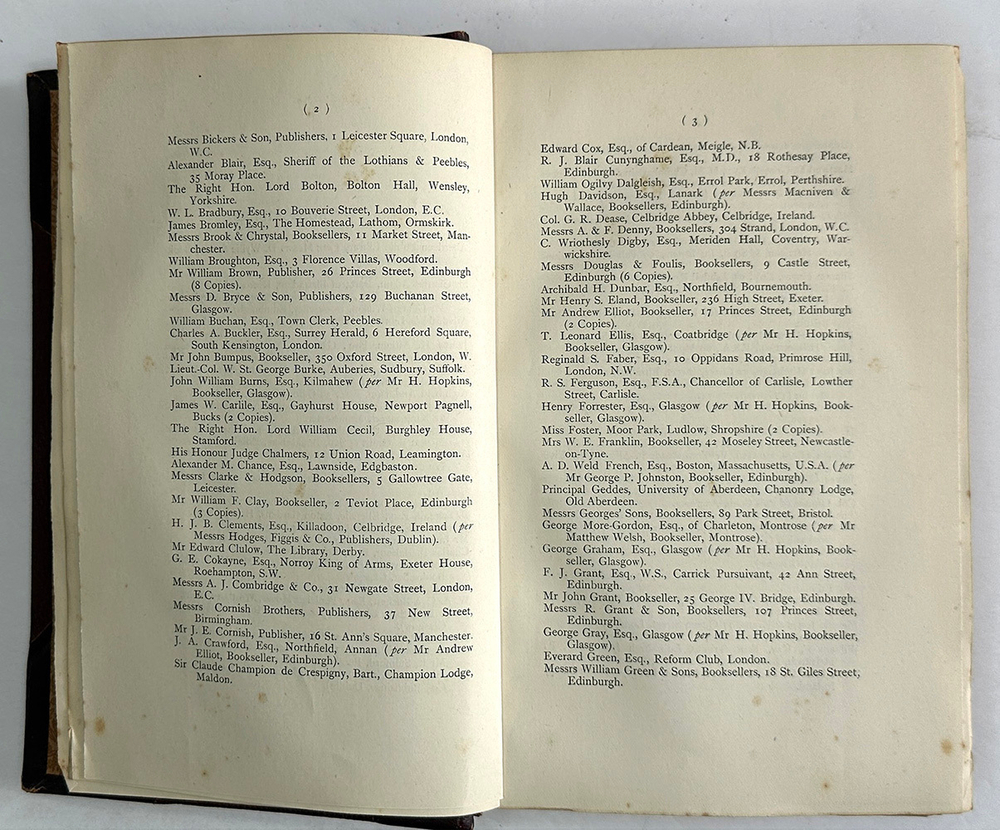 ( 2 )
Messrs Bickers & Son, Publishers, 1 Leicester Square, London,
W.C.
Alexander Blair, Esq., Sheriff of the Lothians & Peebles,
35 Moray Place.
The Right Hon. Lord Bolton, Bolton Hall, Wensley,
Yorkshire.
W. L. Bradbury, Esq., 10 Bouverie Street, London, E.C.
James Bromley, Esq., The Homestead, Lathom, Ormskirk.
Messrs Brook & Chrystal, Booksellers, 11 Market Street, Man-
chester.
William Broughton, Esq., 3 Florence Villas, Woodford.
Mr William Brown, Publisher, 26 Princes Street, Edinburgh
(8 Copies).
Messrs D. Bryce & Son, Publishers, 129 Buchanan Street,
Glasgow.
William Buchan, Esq., Town Clerk, Peebles.
Charles A. Buckler, Esq., Surrey Herald, 6 Hereford Square,
South Kensington, London.
Mr John Bumpus, Bookseller, 350 Oxford Street, London, W.
Lieut.-Col. W. St. George Burke, Auberies, Sudbury, Suffolk.
John William Burns, Esq., Kilmahew (per Mr H. Hopkins,
Bookseller, Glasgow).
James W. Carlile, Esq., Gayhurst House, Newport Pagnell,
Bucks (2 Copies).
The Right Hon. Lord William Cecil, Burghley House,
Stamford.
His Honour Judge Chalmers, 12 Union Road, Leamington.
Alexander M. Chance, Esq., Lawnside, Edgbaston.
Messrs Clarke & Hodgson, Booksellers, 5 Gallowtree Gate,
Leicester.
Mr William F. Clay, Bookseller, 2 Teviot Place, Edinburgh
(3 Copies).
H. J. B. Clements, Esq., Killadoon, Celbridge, Ireland (per
Messrs Hodges, Figgis & Co., Publishers, Dublin).
Mr Edward Clulow, The Library, Derby.
G. E. Cokayne, Esq., Norroy King of Arms, Exeter House,
Roehampton, S.W.
Messrs A. J. Combridge & Co., 31 Newgate Street, London,
E.C.
Messrs Cornish Brothers, Publishers, 37 New Street,
Birmingham.
Mr J. E. Cornish, Publisher, 16 St. Ann's Square, Manchester.
J. A. Crawford, Esq., Northfield, Annan (per Mr Andrew
Elliot, Bookseller, Edinburgh).
Sir Claude Champion de Crespigny, Bart., Champion Lodge,
Maldon.
( 3 )
Edward Cox, Esq., of Cardean, Meigle, N.B.
R. J. Blair Cunynghame, Esq., M.D., 18 Rothesay Place,
Edinburgh.
William Ogilvy Dalgleish, Esq., Errol Park, Errol, Perthshire.
Hugh Davidson, Esq., Lanark (per Messrs Macniven &
Wallace, Booksellers, Edinburgh).
Col. G. R. Dease, Celbridge Abbey, Celbridge, Ireland.
Messrs A. & F. Denny, Booksellers, 304 Strand, London, W.C.
C. Wriothesly Digby, Esq., Meriden Hall, Coventry, War-
wickshire.
Messrs Douglas & Foulis, Booksellers, 9 Castle Street,
Edinburgh (6 Copies).
Archibald H. Dunbar, Esq., Northfield, Bournemouth.
Mr Henry S. Eland, Bookseller, 236 High Street, Exeter.
Mr Andrew Elliot, Bookseller, 17 Princes Street, Edinburgh
(2 Copies).
T. Leonard Ellis, Esq., Coatbridge (per Mr H. Hopkins,
Bookseller, Glasgow).
Reginald S. Faber, Esq., 10 Oppidans Road, Primrose Hill,
London, N.W.
R. S. Ferguson, Esq., F.S.A., Chancellor of Carlisle, Lowther
Street, Carlisle.
Henry Forrester, Esq., Glasgow (per Mr H. Hopkins, Book-
seller, Glasgow).
Miss Foster, Moor Park, Ludlow, Shropshire (2 Copies).
Mrs W. E. Franklin, Bookseller, 42 Moseley Street, Newcastle-
on-Tyne.
A. D. Weld French, Esq., Boston, Massachusetts, U.S.A. (per
Mr George P. Johnston, Bookseller, Edinburgh).
Principal Geddes, University of Aberdeen, Chanonry Lodge,
Old Aberdeen.
Messrs Georges' Sons, Booksellers, 89 Park Street, Bristol.
George More-Gordon, Esq., of Charleton, Montrose (per Mr
Matthew Welsh, Bookseller, Montrose).
George Graham, Esq., Glasgow (per Mr H. Hopkins, Book-
seller, Glasgow).
F. J. Grant, Esq., W.S., Carrick Pursuivant, 42 Ann Street,
Edinburgh.
Mr John Grant, Bookseller, 25 George IV. Bridge, Edinburgh.
Messrs R. Grant & Son, Booksellers, 107 Princes Street,
Edinburgh.
George Gray, Esq., Glasgow (per Mr H. Hopkins, Bookseller,
Glasgow).
Everard Green, Esq., Reform Club, London.
Messrs William Green & Sons, Booksellers, 18 St. Giles Street,
Edinburgh.